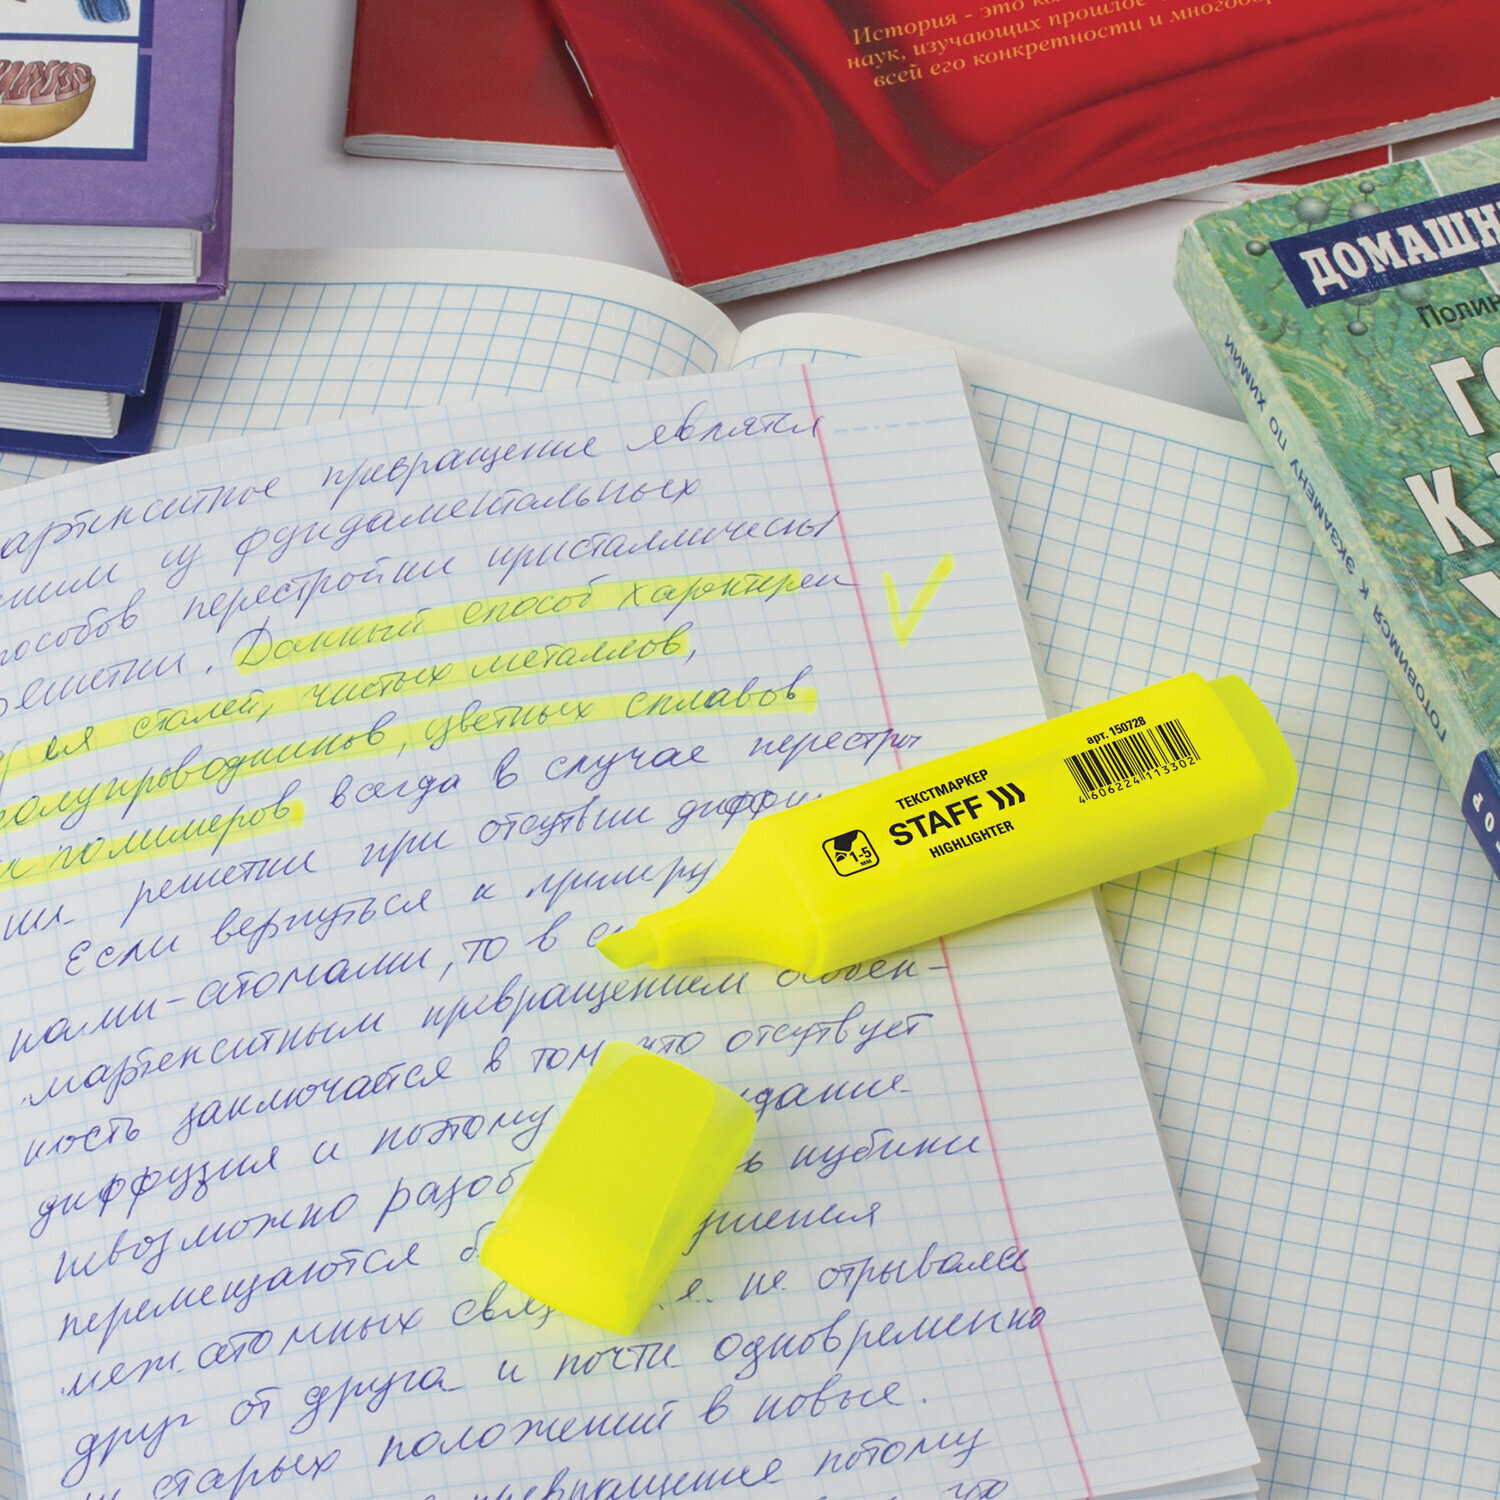 История - это ко
наук, изучающих прошлое
всей его конкретности и многооб
ДОМАШН
Полин
К
ГОТОВИМСЯ К ЭКЗАМЕНУ ПО ХИМИИ
артенситное превращение являтся
ним из фундаментальных
пособов перестройки кристаллическы
решетки. Данный способ характерен
для сталей, чистых металлов,
полупроводников, цветных сплавов
и полимеров всегда в случае перестрой
ки решетки при отсутвии диффу
Если вернуться к примеру
ками-атомами, то в
мартенситным превращением особен-
ность заключатся в том, что отсутвует
диффузия и поэтому здание
невозможно разоб ь кубики
перемещаются б ушения
межатомных связ .е. не отрывалс
друг от друга и почти одновременно
старых положений в новые.
превращение потому
что
арт. 150728
4606224113302
ТЕКСТМАРКЕР
STAFF
HIGHLIGHTER
1-5
мм